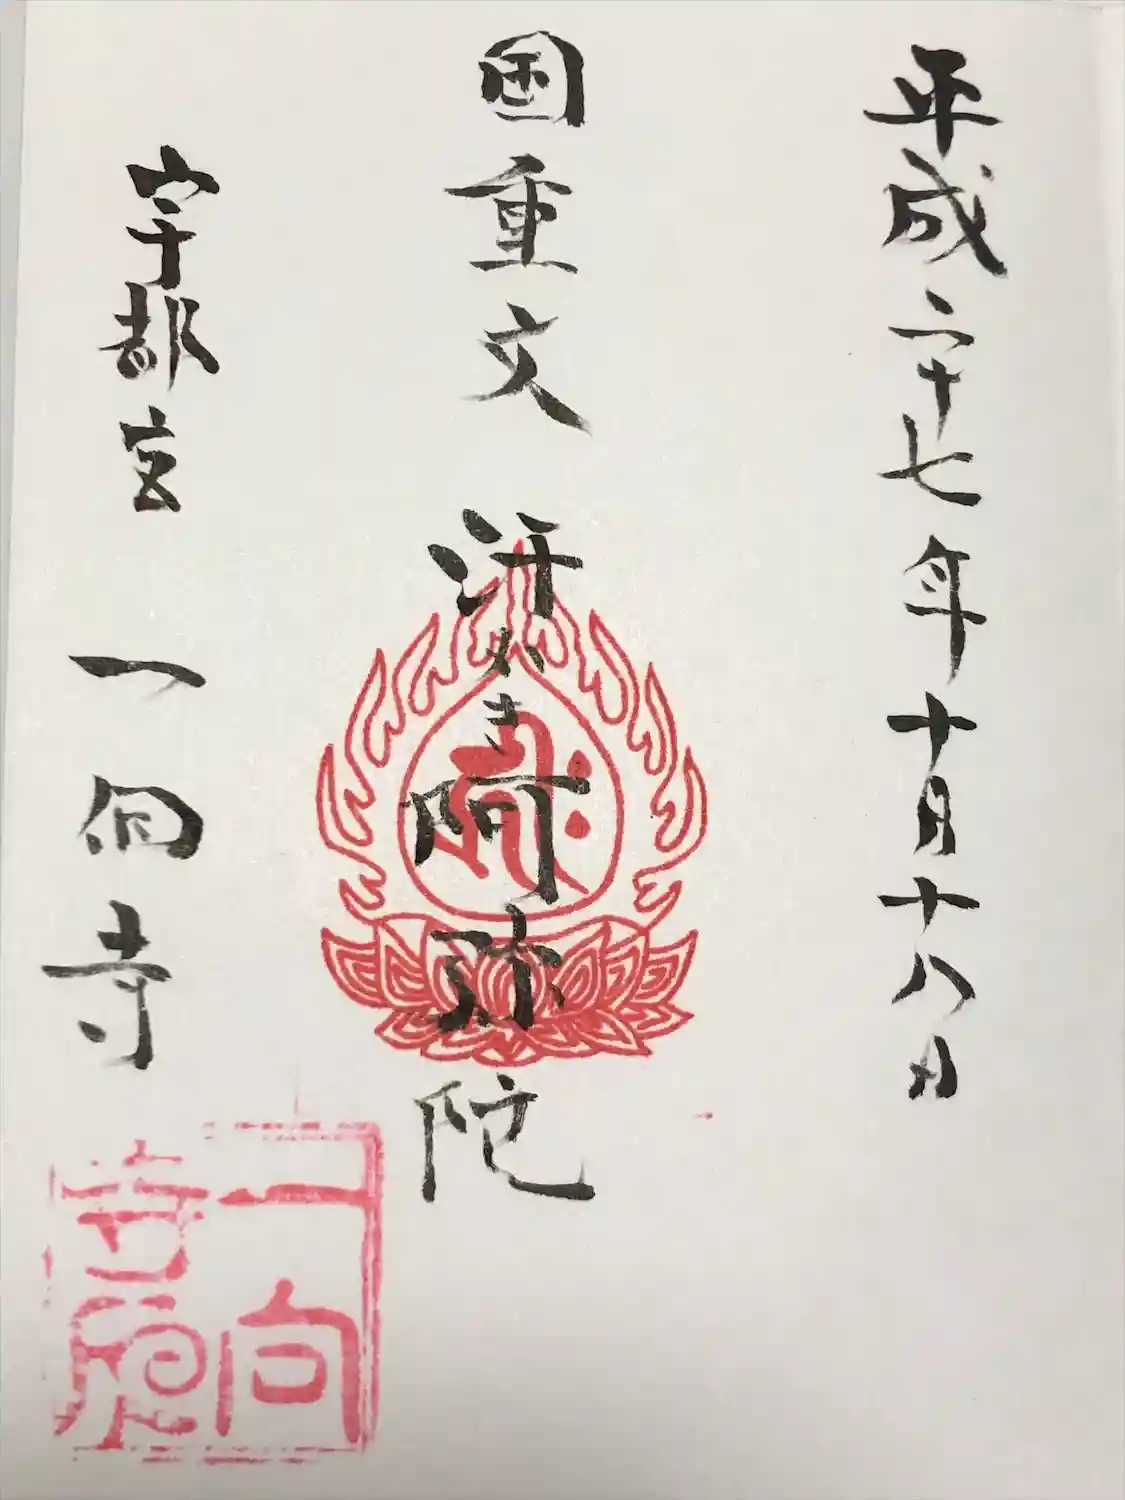 平成二十七年十月十八日
国重文 汗かき阿弥陀
宇都宮 一向寺
一向
寺印